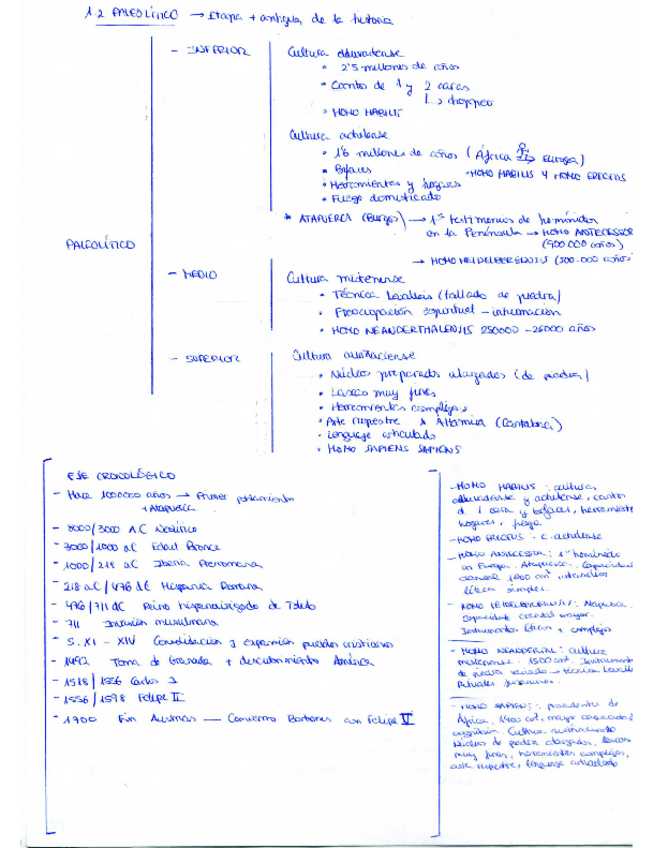 1.2 PALEOLÍTICO → Etapa + antigua de la historia
PALEOLÍTICO
- INFERIOR
Cultura olduvaiense
• 2'5 millones de años
• Cantos de 1 y 2 caras
↳ chopper
• HOMO HABILIS
Cultura achelense
• 1'6 millones de años (África → Europa)
• Bifaces
• HOMO HABILIS Y HOMO ERECTUS
• Herramientas y hogares
• Fuego domesticado
* ATAPUERCA (Burgos) → 1os testimonios de homínidos
en la Península → HOMO ANTECESSOR
(900.000 años)
→ HOMO HEIDELBERGENSIS (500.000 años)
- MEDIO
Cultura musteriense
• Técnica Levallois (tallado de piedra)
• Preocupación espiritual - inhumación
• HOMO NEANDERTHALENSIS 250000 - 26000 años
- SUPERIOR
Cultura auriñaciense
• Núcleos preparados alargados (de piedra)
• Lascas muy finas
• Herramientas complejas
• Arte rupestre * Altamira (Cantabria)
• Lenguaje articulado
• HOMO SAPIENS SAPIENS
EJE CRONOLÓGICO
- Hace 1000000 años → Primer poblamiento
+ Atapuerca
- 8000/3000 A.C Neolítico
- 3000/1000 a.C Edad Bronce
- 1000/218 a.C Iberia Prerromana
- 218 a.C/476 d.C Hispania Romana
- 476/711 d.C Reino hispanovisigodo de Toledo
- 711 Invasión musulmana
- S. XI - XIV Consolidación y expansión pueblos cristianos
- 1492 Toma de Granada + descubrimiento América
- 1518/1556 Carlos I
- 1556/1598 Felipe II
- 1700 Fin Austrias — Comienzo Borbones con Felipe V
- HOMO HABILIS: cultura
olduvaiense y achelense, cantos
d 1 cara y bifaces, herramienta
hogares, fuego
- HOMO ERECTUS - c. achelense
- HOMO ANTECESSOR: 1er homínido
en Europa. Atapuerca. Capacidad
craneal 1000 cm3
líticos simples.
- HOMO HEIDELBERGENSIS:
Capacidad craneal mayor.
Instrumentos líticos + complejos
- HOMO NEANDERTAL: cultura
musteriense. 1500 cm3. Instrumentos
de piedra variado → técnica Levallois
Rituales funerarios.
- HOMO SAPIENS: procedentes de
África, 1400 cm3, mayor capacidad
cognitiva. Cultura auriñaciense
Núcleos de piedra alargados, lascas
muy finas, herramientas complejas,
arte rupestre, lenguaje articulado